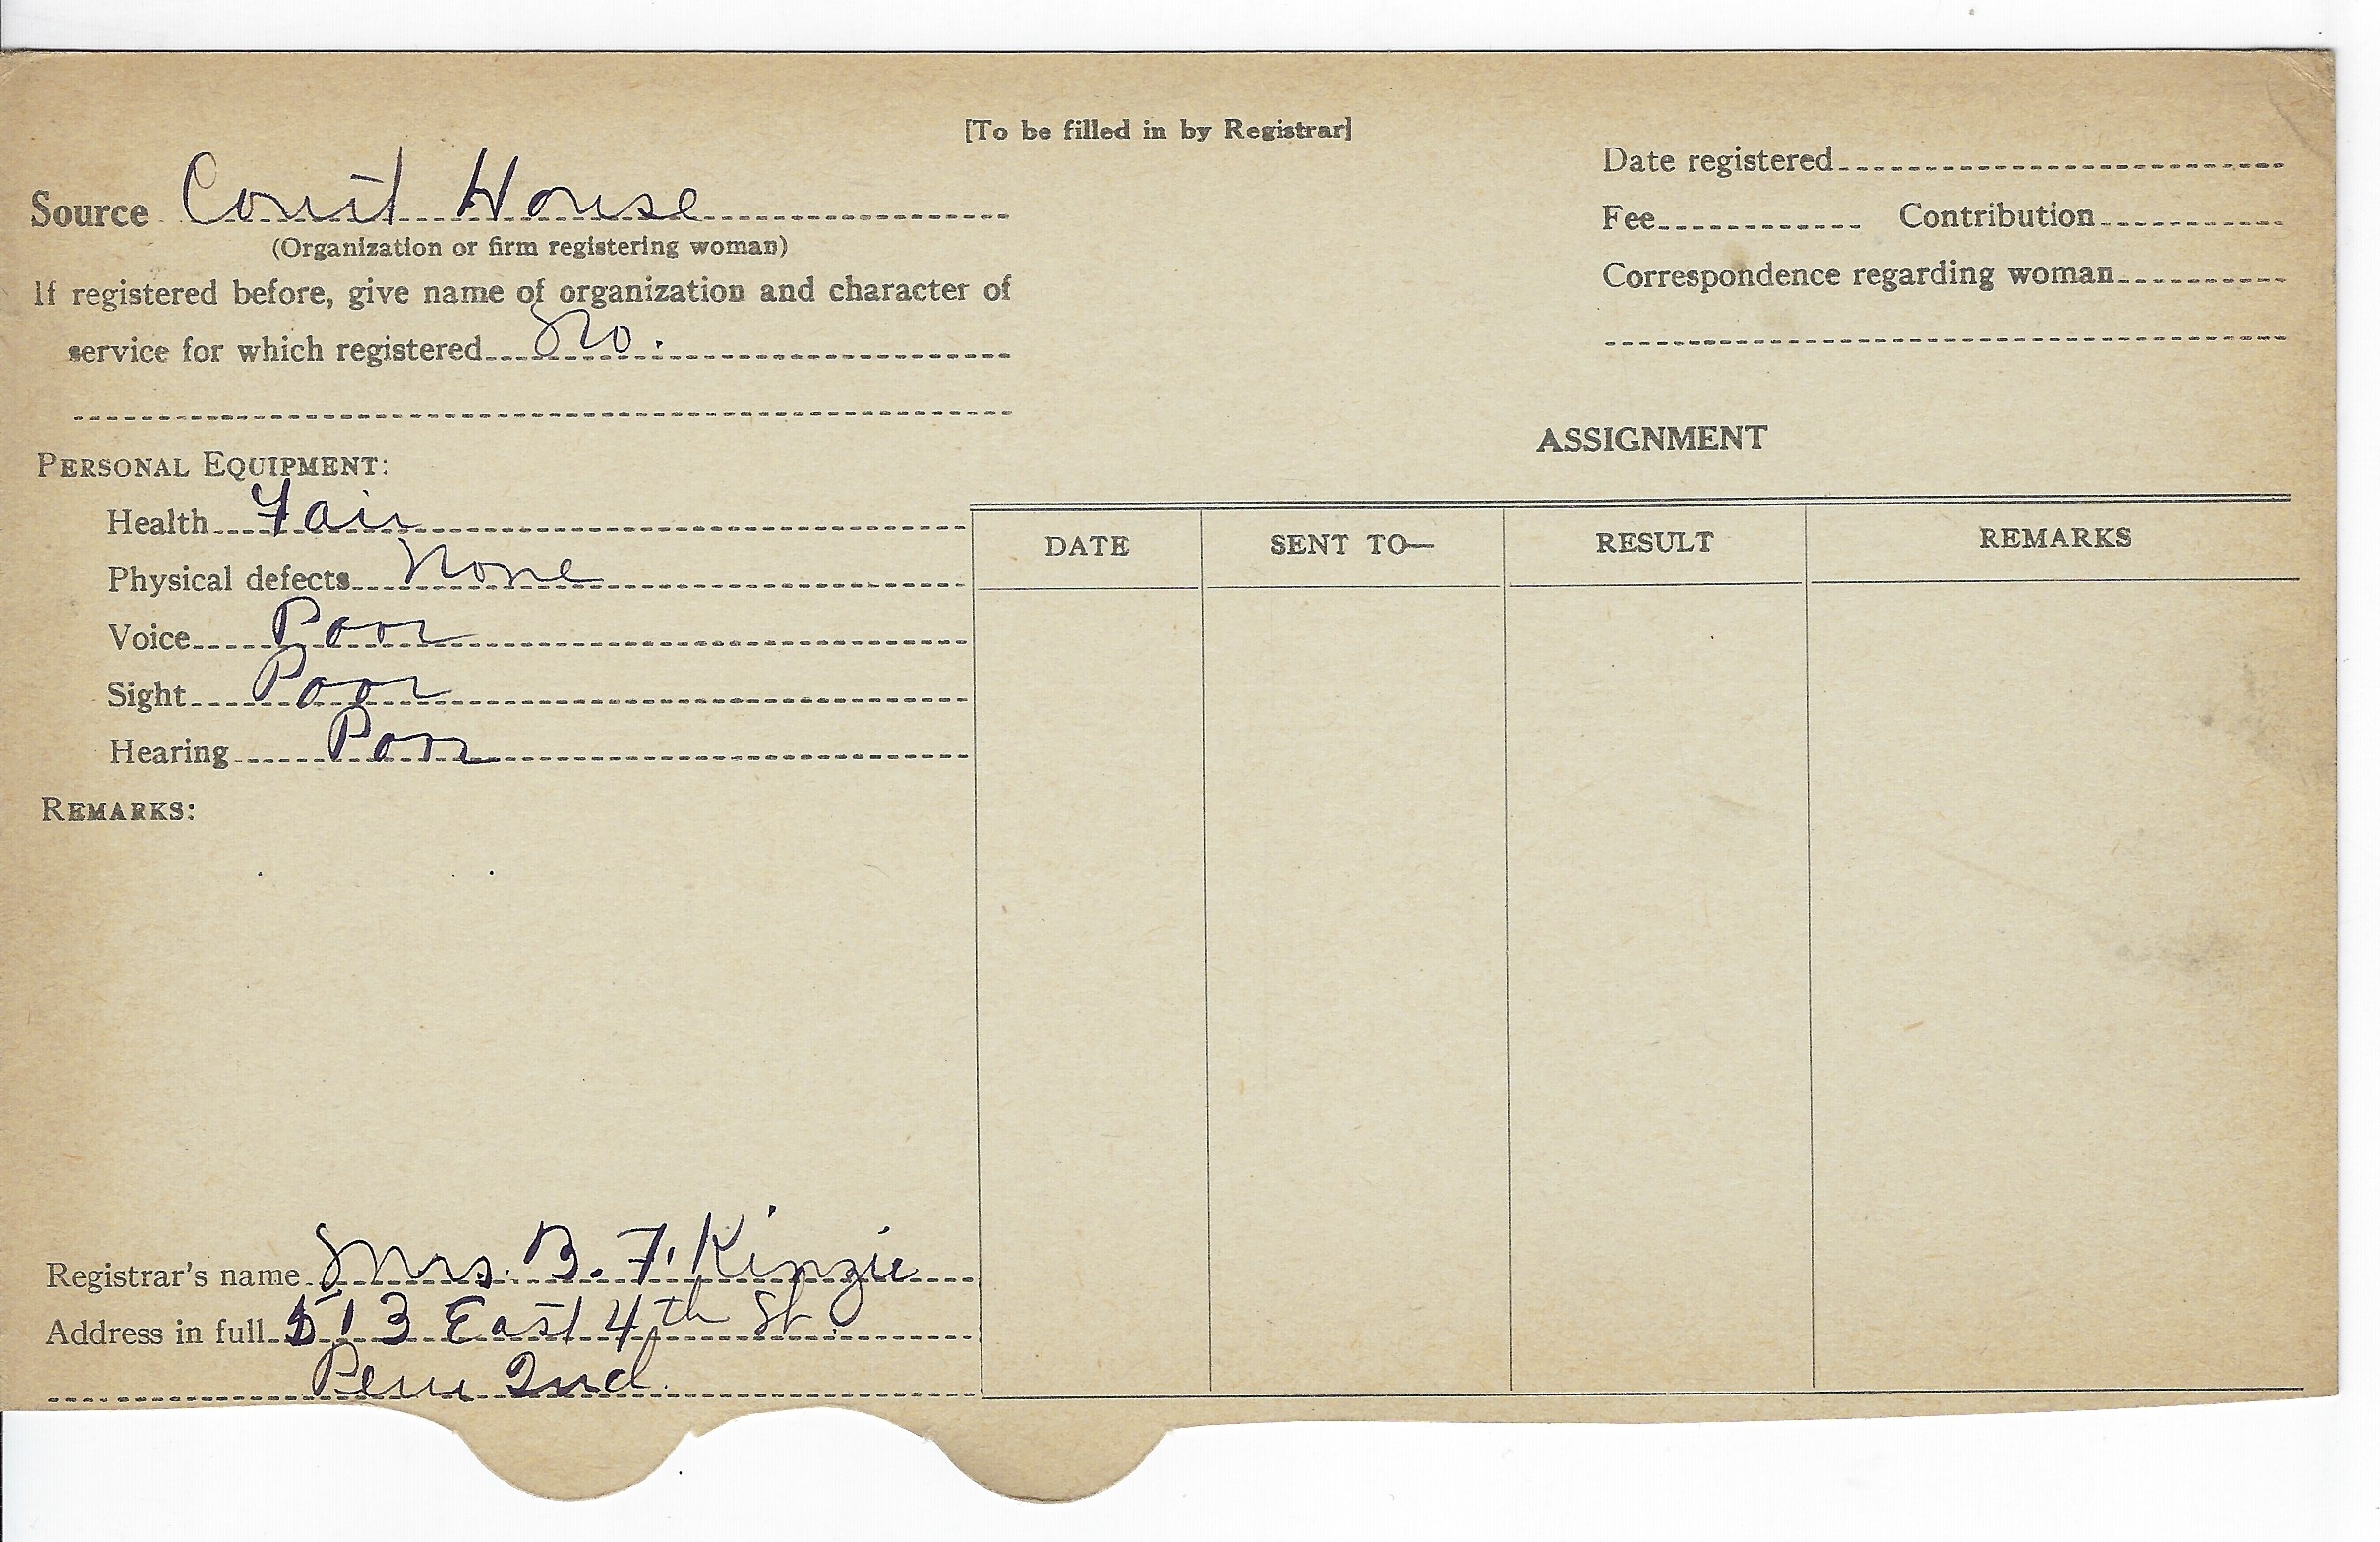 [To be filled in by Registrar]
Source Court House
(Organization or firm registering woman)
If registered before, give name of organization and character of
service for which registered No.
Date registered
Fee Contribution
Correspondence regarding woman
PERSONAL EQUIPMENT:
Health Fair
Physical defects None
Voice Poor
Sight Poor
Hearing Poor
REMARKS:
ASSIGNMENT
DATE SENT TO— RESULT REMARKS
Registrar's name Mrs. B. F. Kinzie
Address in full 513 East 4th St.
Peru Ind.